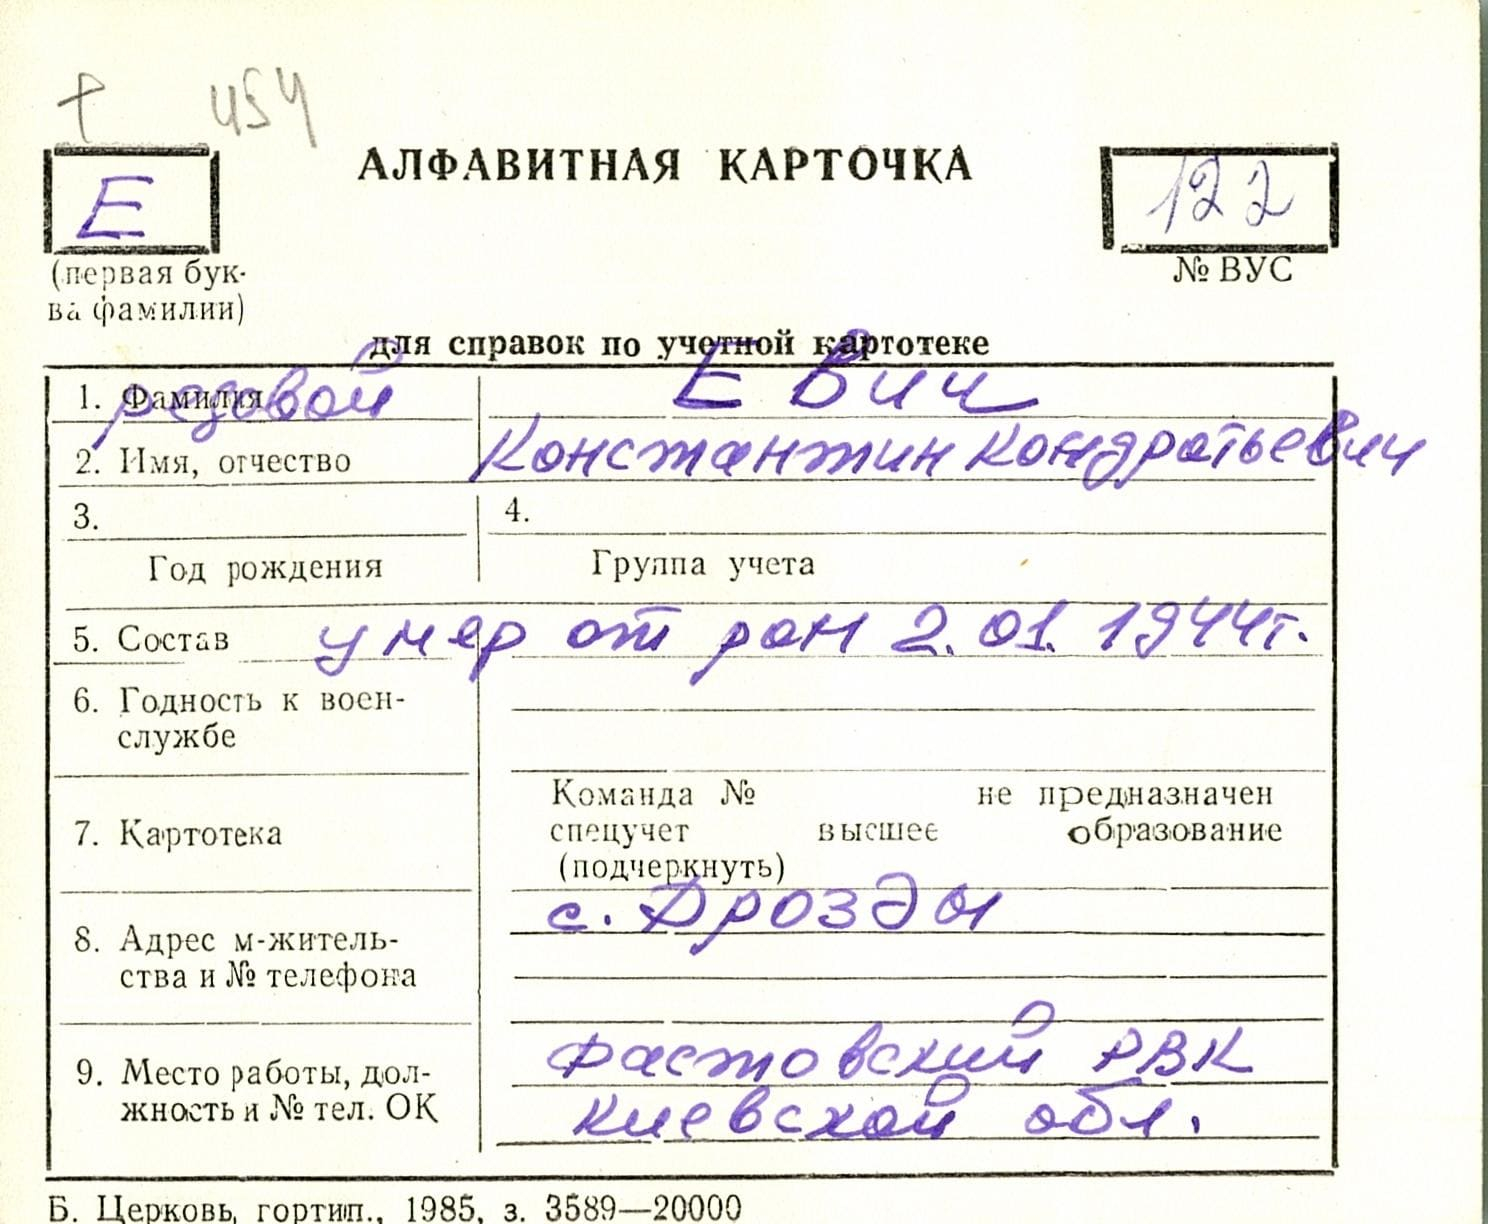 † 454
АЛФАВИТНАЯ КАРТОЧКА
Е
122
(первая бук-
ва фамилии)
№ ВУС
для справок по учетной картотеке
1. Фамилия рядовой Евич
2. Имя, отчество Константин Кондратьевич
3. 4.
Год рождения Группа учета
5. Состав умер от ран 2.01.1944г.
6. Годность к воен-
службе
Команда № не предназначен
7. Картотека спецучет высшее образование
(подчеркнуть)
с. Дрозды
8. Адрес м-житель-
ства и № телефона
Фастовский РВК
9. Место работы, дол-
жность и № тел. ОК Киевской обл.
Б. Церковь, гортип., 1985, з. 3589—20000